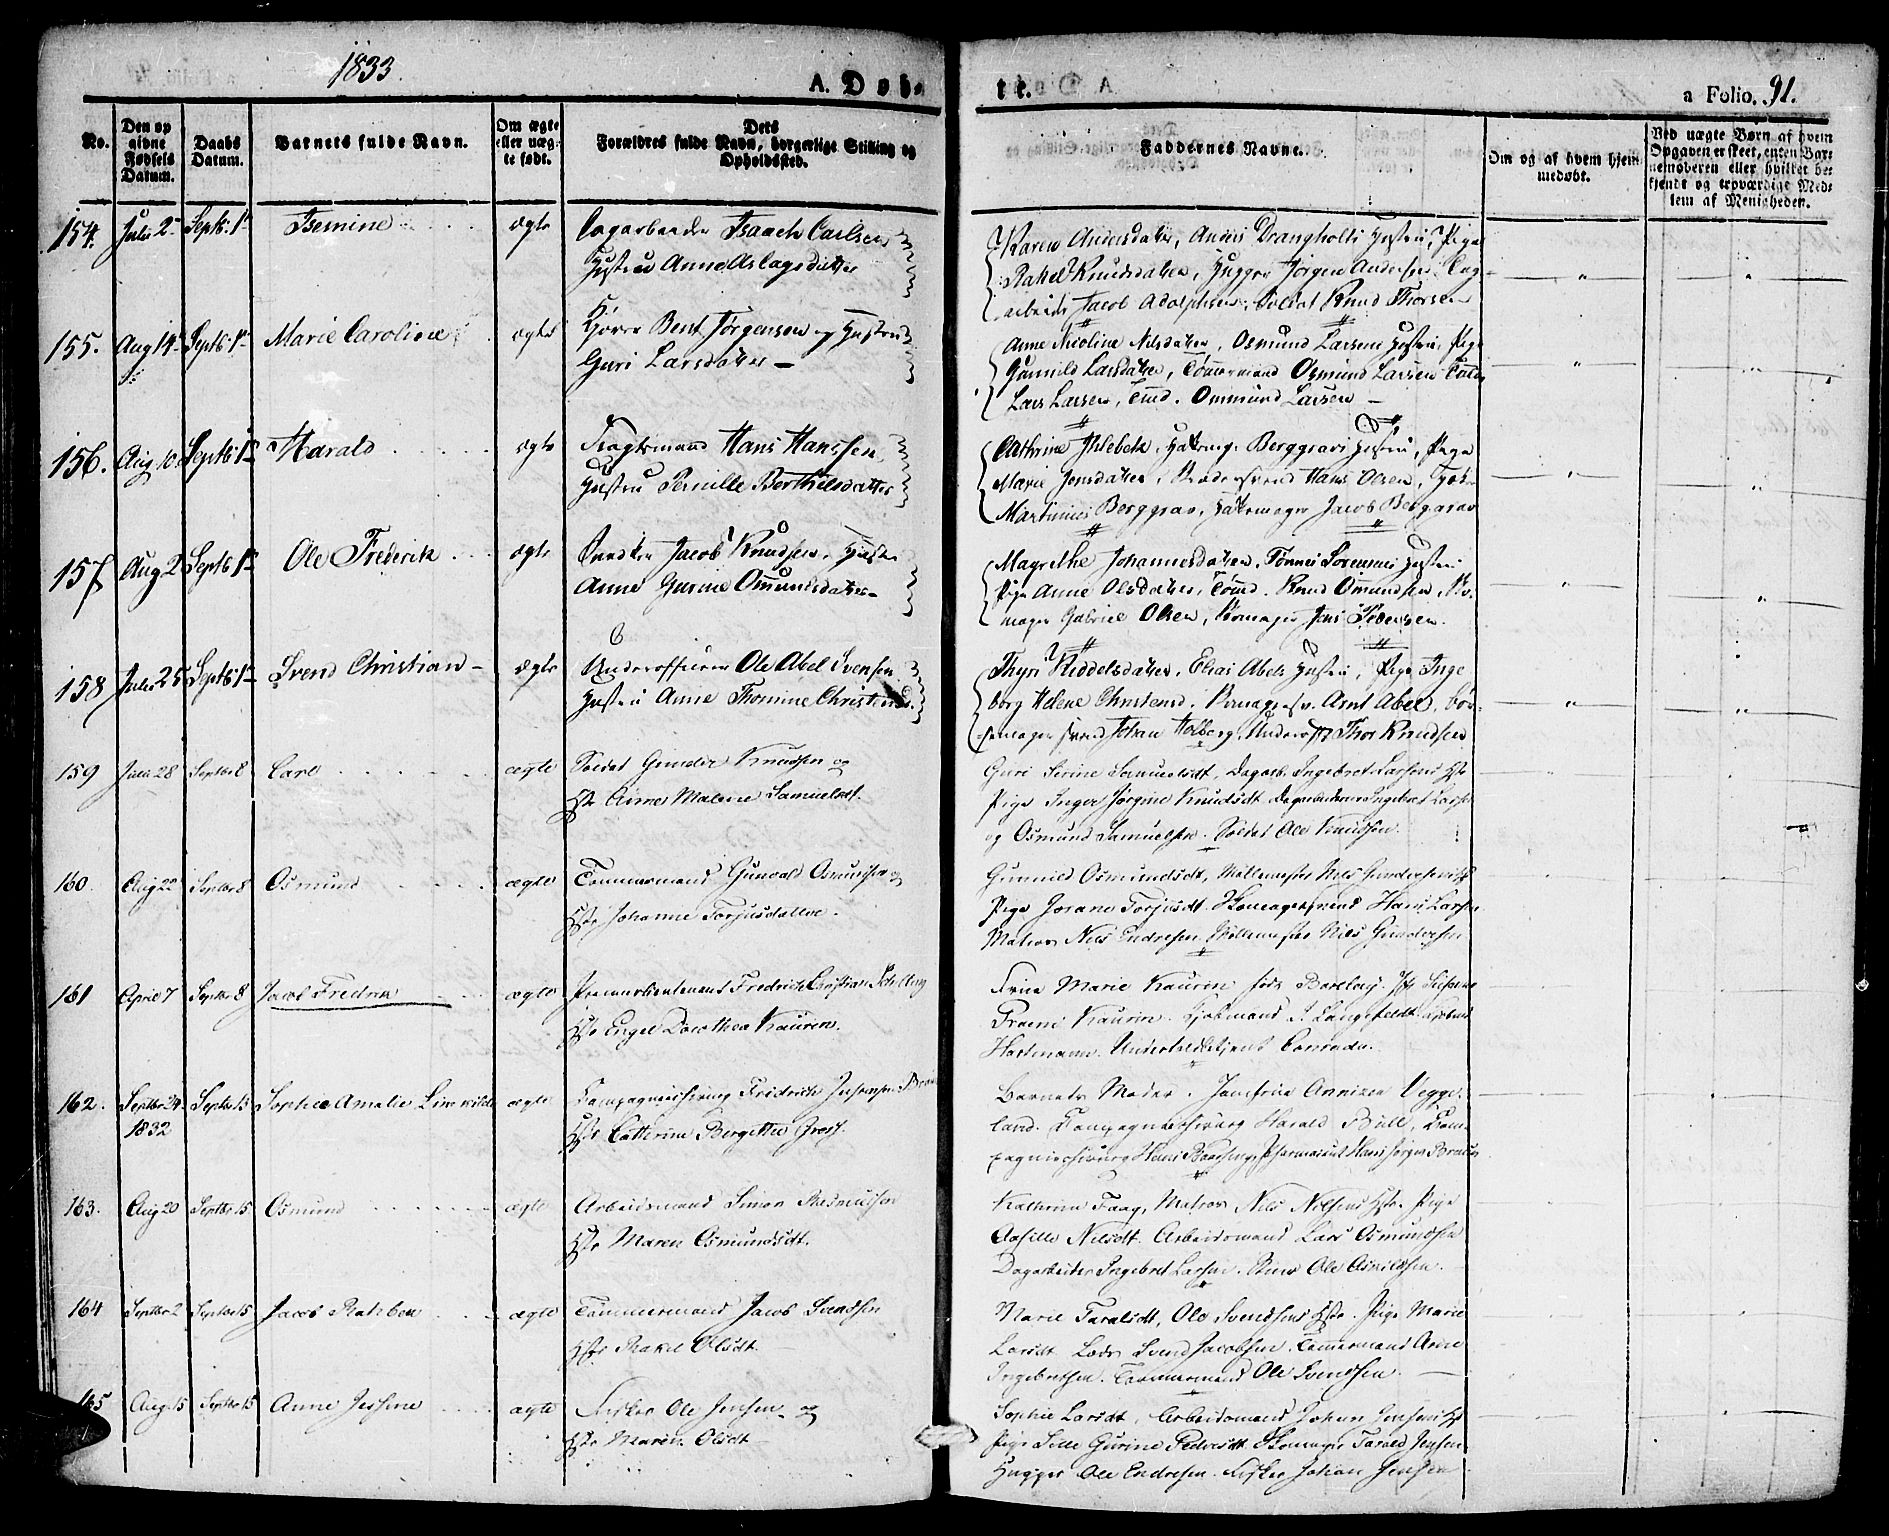 1833.
A. Døbte.
a Folio. 91.
No.
Den op
givne
Fødsels
Datum.
Daabs
Datum.
Barnets fulde Navn.
Om ægte
eller uæg
te født.
Dets
Forældres fulde Navn, borgerlige Stilling og
Opholdssted.
Faddernes Navne.
Om og af hvem hjem
medøbt.
Ved uægte Børn af hvem
Opgaven er skeet, enten Bar-
nemoderen eller hvilket be-
kjendt og troværdige Med-
lem af Menigheden.
154. Juli 2 Septb: 1 Isemine ægte Dagarbeider Isaach Carlsen
Hustrue Anne Aslagsdatter
Karen Andersdatter, Anders Drangholts Hustru, Pige
Rakel Knudsdatter, Hugger Jørgen Andersen, Dag-
arbeider Jacob Adolphsen, Soldat Knud Thorsen
155. Aug 14 Septb: 1 Marie Caroline ægte Bent Jørgensen og Hustru
Guri Larsdatter
Anne Nicoline Nilsdatter, Osmund Larsens Hustru, Pige
Gunnild Larsdatter, Tømmermand Osmund Larsen
Lars Larsen, Tmd. Ommund Larsen
156. Aug 10 Septb: 1 Harald ægte Fragtemand Hans Hanssen
Hustru Pernille Berthelsdatter
Cathrine Berggravs Hustru, Pige
Marie Jensdatter, Hans Olsen,
Martinius Berggrav, Jacob Berggrav
157 Aug 2 Septb 1 Ole Frederik ægte Jacob Knudsen, Hustru
Anne Gurine Osmundsdatter
Magrethe Johannesdatter, Tønnes Sørensens Hustru
Pige Anne Olsdatter, Tømd. Knud Omundsen,
mager Gabriel Olsen, Jens Pedersen.
158 Juli 25 Septb 1 Svend Christian ægte Underofficeer Ole Abel Svensen
Hustru Anne Thomine
Thyri Kiddelsdatter, Elias Abels Hustru, Pige Inge
borg Helene Christensd, Arnt Abel, bøs-
semager svend Johan Holberg, Underoff Thor Knudsen
159 Juli 28 Septbr 8 Carl ægte Soldat Gunder Knudsen og
Hstr Anne Malene Samuelsdt.
Guri Serine Samuelsdt, Dagarb. Ingebret Larsens Hstr
Pige Inger Jørgine Knudsdt Dagarbeider Ingebret Larsen
og Osmund Samuelsen. Soldat Ole Knudsen.
160. Aug 22 Septbr 8 Osmund ægte Tømmermand Gunvald Osmundsen og
Hstr Johanne Torjusdatter.
Gunnild Osmundsdt, Møllemester Nils Gundersens
Pige Josane Torjusdt. Skomagersvend Hans Larsen
Matros Nils Endresen Møllemester Nils Gundersen
161 April 7 Septbr 8 Jacob Fredrik ægte Premierlieutenant Fredrich Christian
Hstr Engel Dorothea Kaurin.
Frue Marie Kaurin født Barclay.
Kaurin. Kjøbmand S. Langefeldt.
Hartmann.
162. Septbr 24
1832 Septbr 15 Sophie Amalie ægte Compagniechirurg Fredrich
Hstr Cathrine Bergitte
Barnets Moder. Jomfrue Vegge-
land. Compagniechirurg Harald Bull, Com-
pagniechirurg Hans Pharmaceut Hans Jørgen
163. Aug 20 Septbr 15 Osmund ægte Arbeidsmand Simon Rasmussen
Hstr Maren Osmundsdt.
Kathrine Faag, Matros Nils Nilsens Hstr. Pige
Nilsdt. Arbeidsmand Lars Osmundsen
Dagarbeider Ingebret Larsen. Ole
164 Septbr 2 Septbr 15 Jacob ægte Tømmermand Jacob Svendsen
Hstr Rakel Olsdt.
Marie Taralsdt, Ole Svendsens Hstr. Pige Marie
Larsdt Lods Svend Jacobsen. Tømmermand Arne
Ingebretsen. Tømmermand Ole Svendsen.
165 Aug 15 Septbr 15 Anne Jessine ægte Fisker Ole Jensen og
Hstr Maren Olsdt
Sophie Larsdt, Arbeidsmand Johan Jensens
Pige Gurine Pedersdt Skomager Tarald Jensen
Hugger Ole Endresen. Fisker Johan Jensen